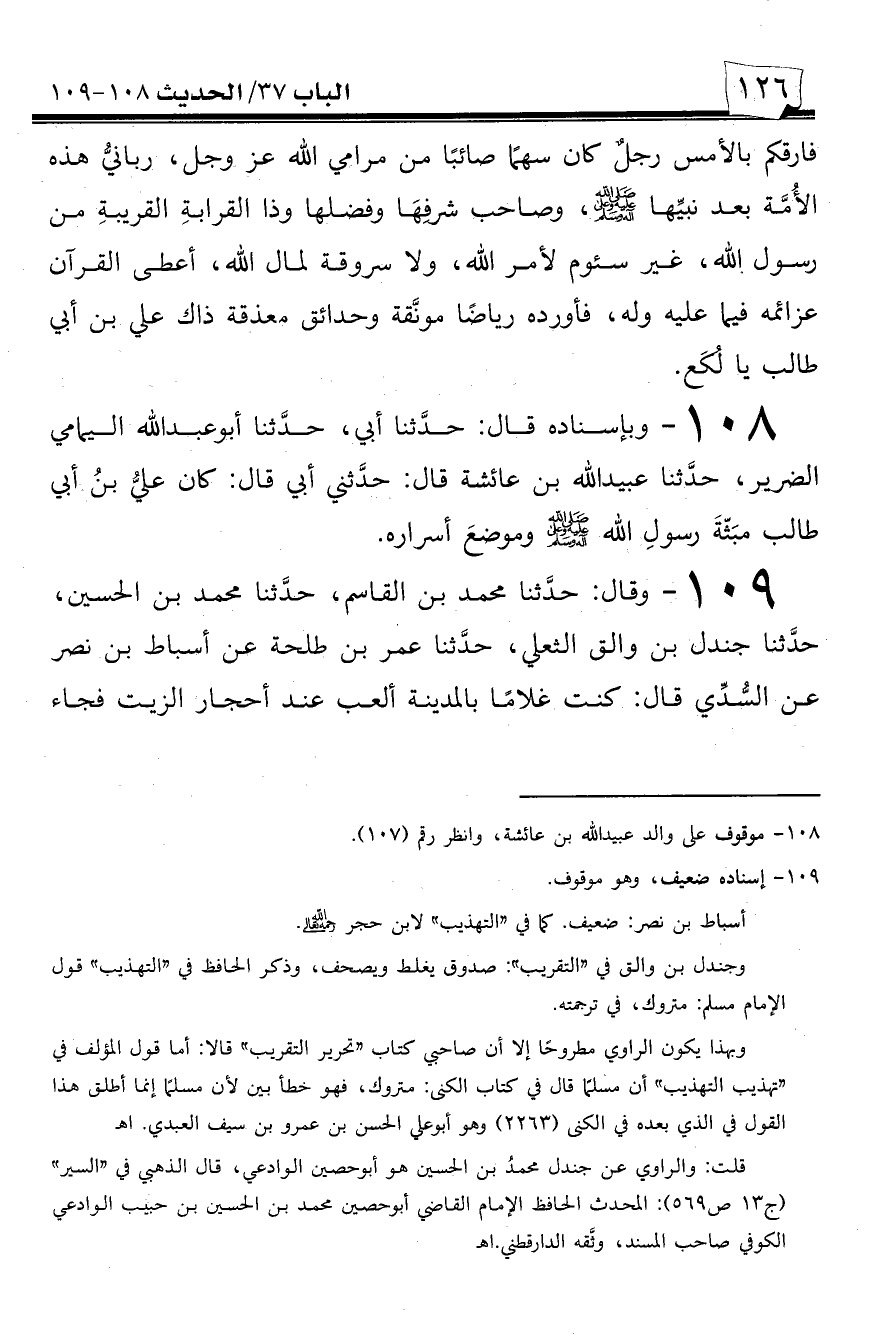 ١٢٦
الباب ٣٧/ الحديث ١٠٨-١٠٩
فارقكم بالأمس رجلٌ كان سهمًا صائبًا من مرامي الله عز وجل، ربانيُّ هذه
الأُمَّة بعد نبيِّها ﷺ، وصاحب شرفِهَا وفضلها وذا القرابةِ القريبةِ من
رسول الله، غير سئوم لأمر الله، ولا سروقة لمال الله، أعطى القرآن
عزائمه فيما عليه وله، فأورده رياضًا مونَّقة وحدائق معذقة ذاك علي بن أبي
طالب يا لُكَع.
١٠٨- وبإسناده قال: حدَّثنا أبي، حدَّثنا أبوعبدالله اليمامي
الضرير، حدَّثنا عبيدالله بن عائشة قال: حدَّثني أبي قال: كان عليُّ بنُ أبي
طالب مبَثّةَ رسولِ الله ﷺ وموضعَ أسراره.
١٠٩- وقال: حدَّثنا محمد بن القاسم، حدَّثنا محمد بن الحسين،
حدَّثنا جندل بن والق الثعلي، حدَّثنا عمر بن طلحة عن أسباط بن نصر
عن السُّدِّي قال: كنت غلامًا بالمدينة ألعب عند أحجار الزيت فجاء
١٠٨- موقوف على والد عبيدالله بن عائشة، وانظر رقم (١٠٧).
١٠٩- إسناده ضعيف، وهو موقوف.
أسباط بن نصر: ضعيف. كما في «التهذيب» لابن حجر رحمه الله.
وجندل بن والق في «التقريب»: صدوق يغلط ويصحف، وذكر الحافظ في «التهذيب» قول
الإمام مسلم: متروك، في ترجمته.
وبهذا يكون الراوي مطروحًا إلا أن صاحبي كتاب «تحرير التقريب» قالا: أما قول المؤلف في
«تهذيب التهذيب» أن مسلمًا قال في كتاب الكنى: متروك، فهو خطأ بين لأن مسلمًا إنما أطلق هذا
القول في الذي بعده في الكنى (٢٢٦٣) وهو أبوعلي الحسن بن عمرو بن سيف العبدي. اهـ
قلت: والراوي عن جندل محمدُ بن الحسين هو أبوحصين الوادعي، قال الذهبي في «السير»
(ج١٣ ص٥٦٩): المحدث الحافظ الإمام القاضي أبوحصين محمد بن الحسين بن حبيب الوادعي
الكوفي صاحب المسند، وثَّقه الدارقطني.اهـ